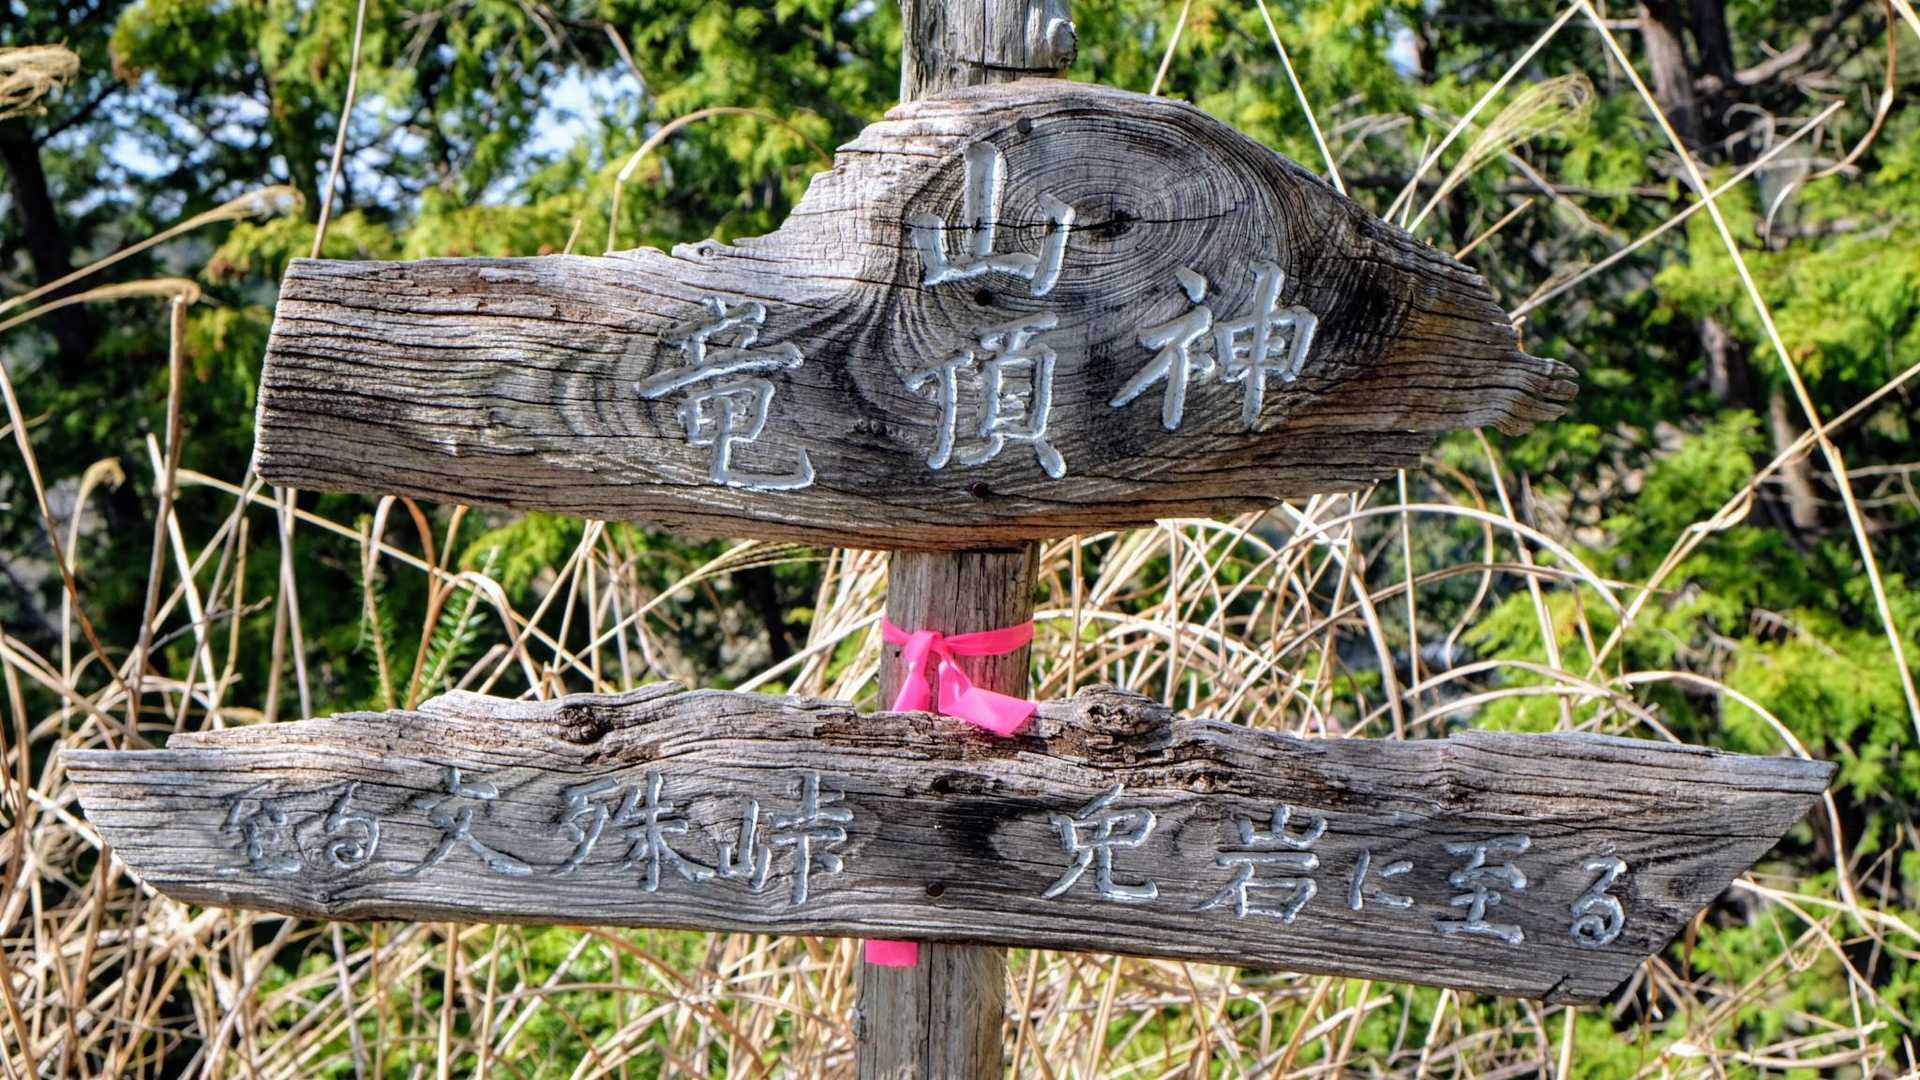 竜神
山頂
至る文殊峠　兎岩に至る